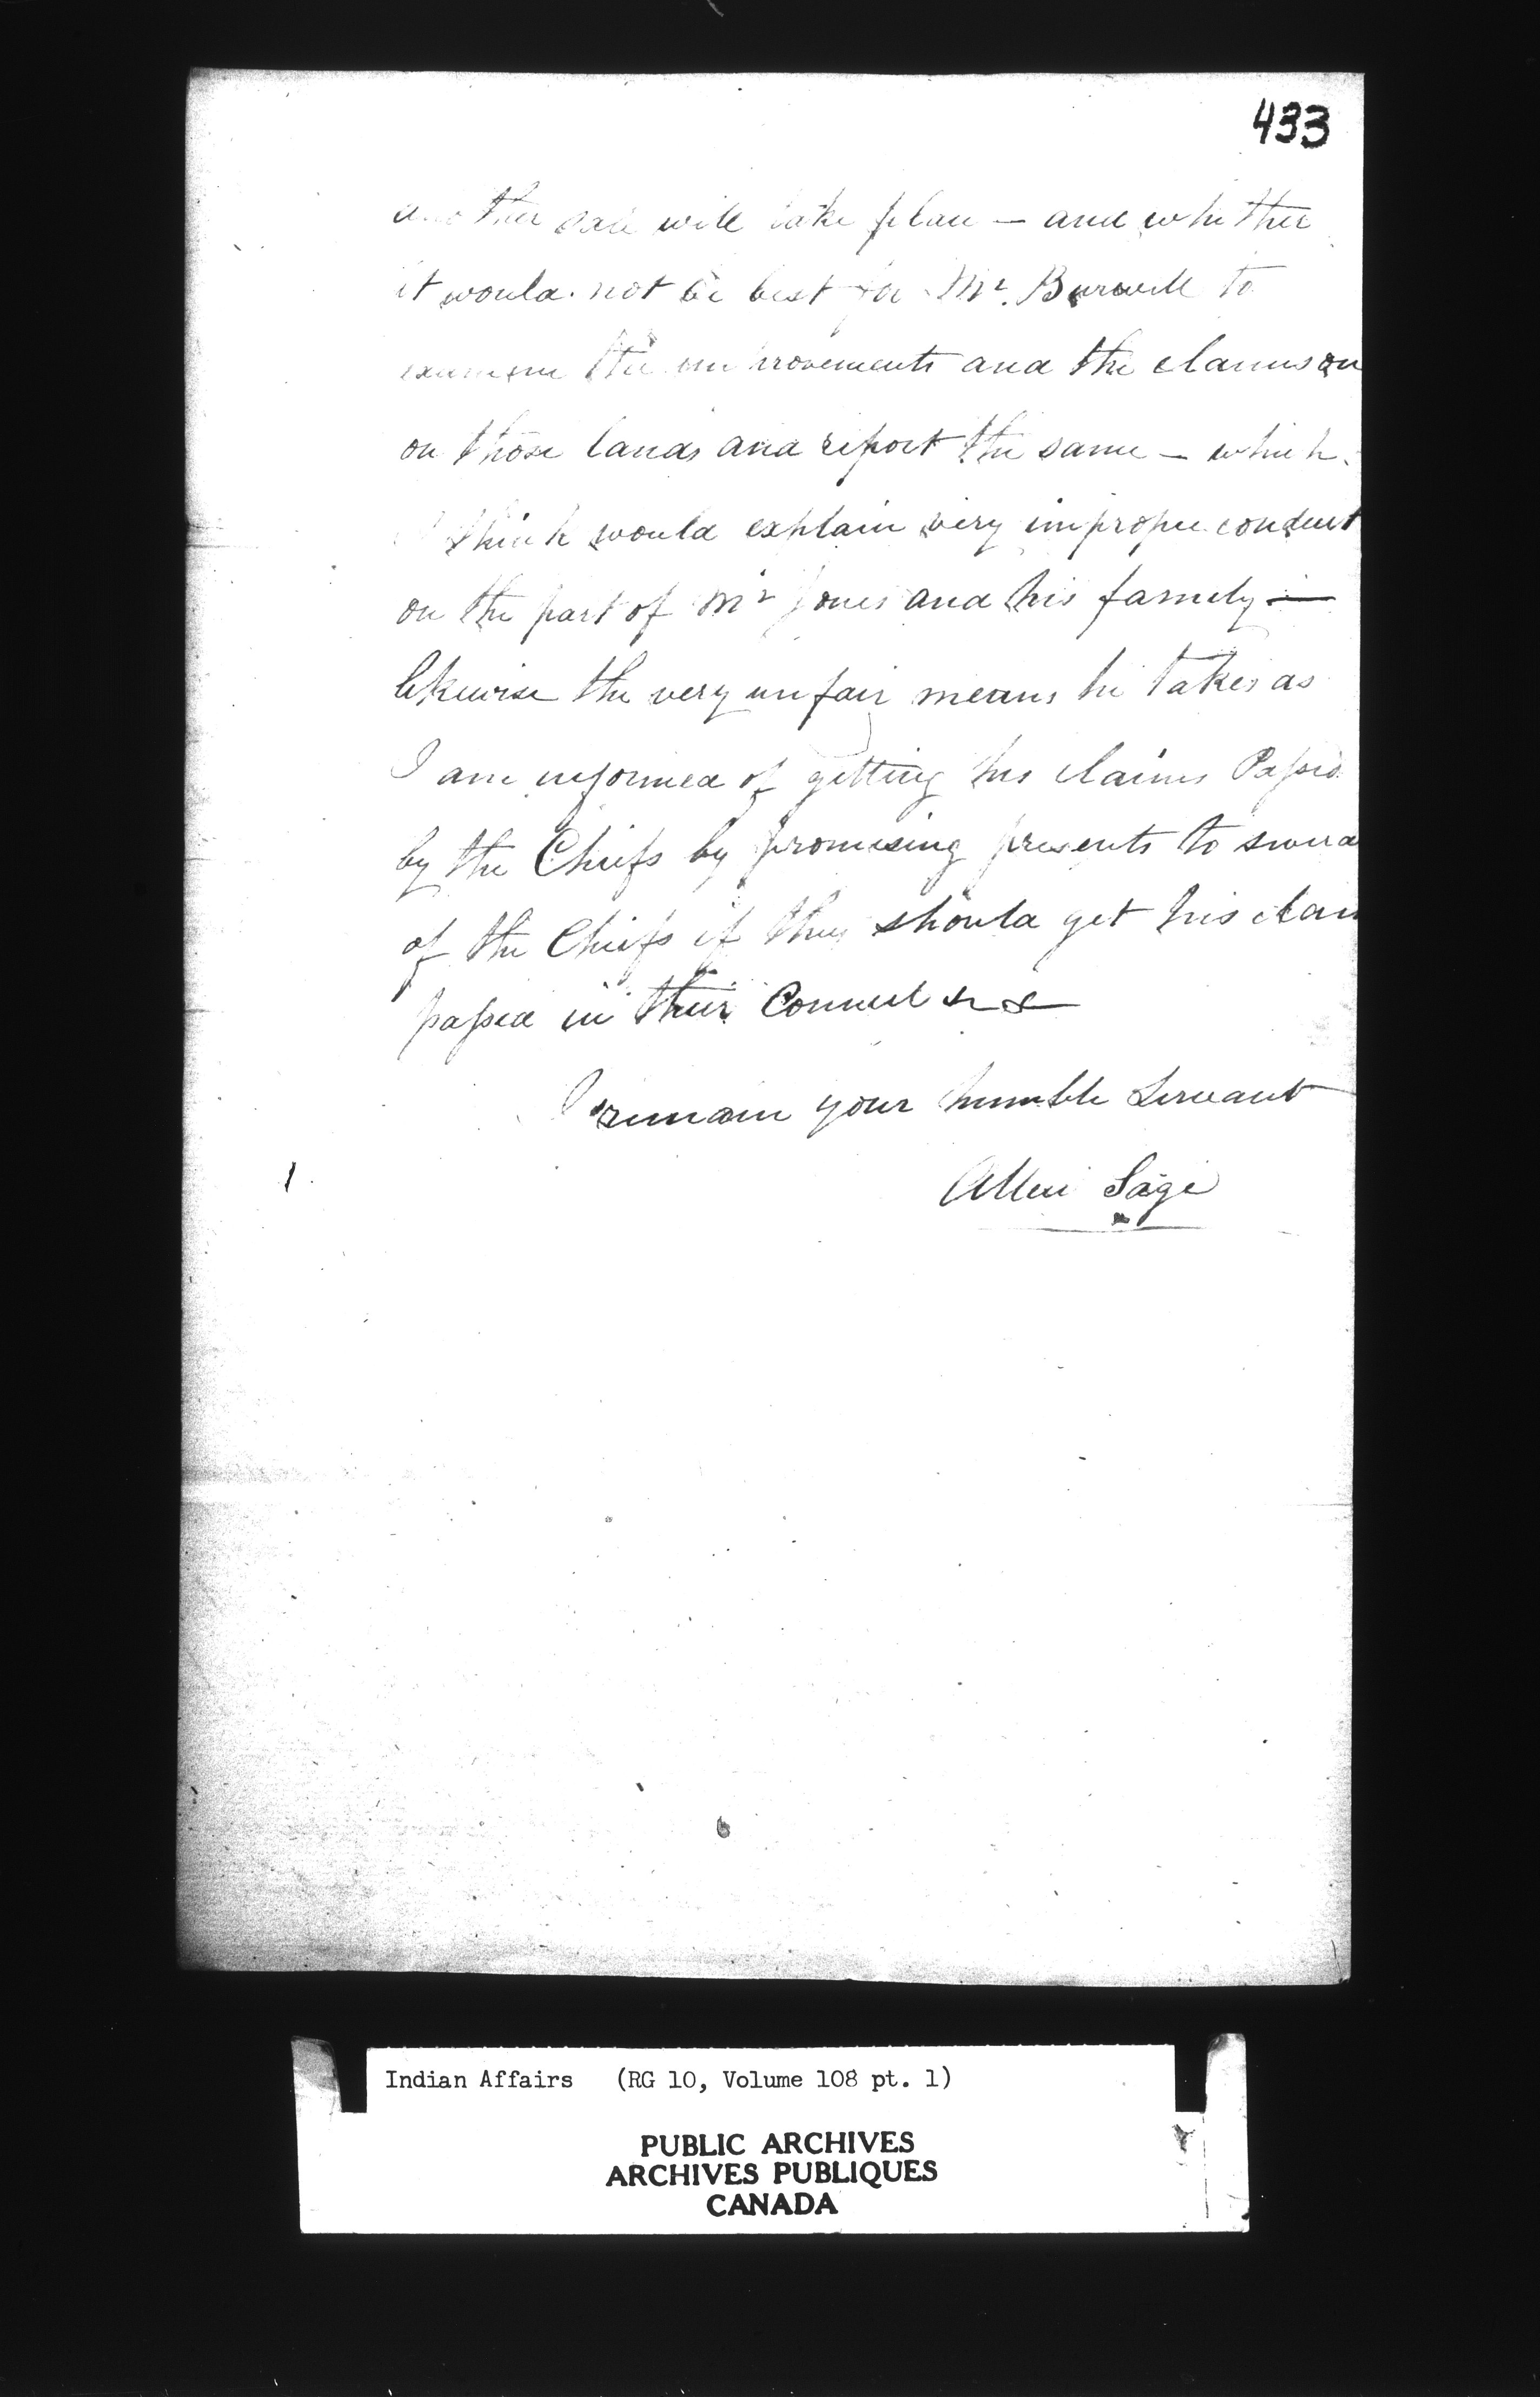 433
another sale will take place — and whether
it would not be best for Mr. Burwell to
examine the improvements and the claims on
on those lands and report the same — which
I think would explain very improper conduct
on the part of Mr Jones and his family —
likewise the very unfair means he takes as
I am informed of getting his claims Passed
by the Chiefs by promising presents to several
of the Chiefs if they should get his claim
passed in their Council &c &c
I remain your humble Servant
Allen Sage
Indian Affairs (RG 10, Volume 108 pt. 1)
PUBLIC ARCHIVES
ARCHIVES PUBLIQUES
CANADA